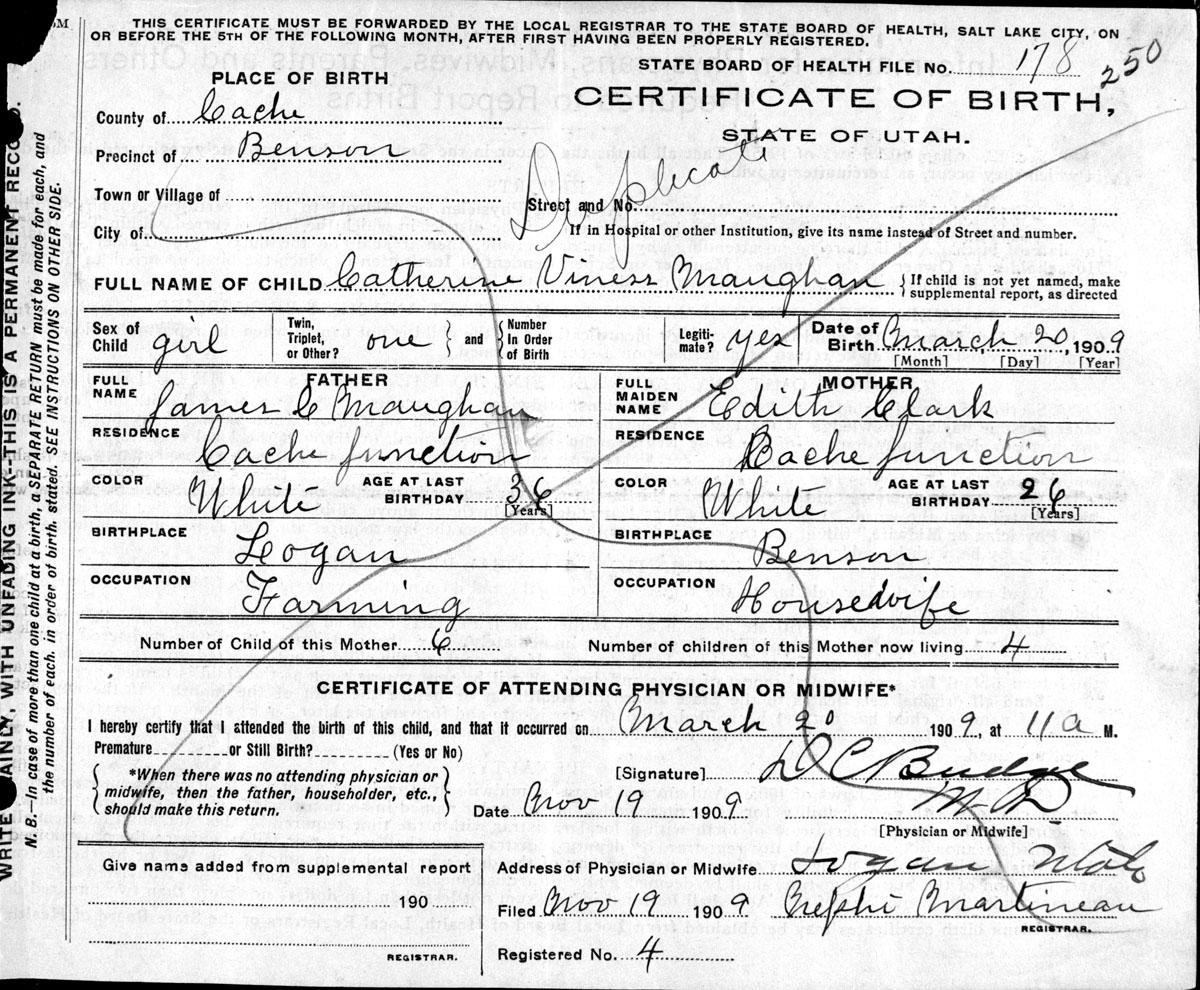 THIS CERTIFICATE MUST BE FORWARDED BY THE LOCAL REGISTRAR TO THE STATE BOARD OF HEALTH, SALT LAKE CITY, ON
OR BEFORE THE 5TH OF THE FOLLOWING MONTH, AFTER FIRST HAVING BEEN PROPERLY REGISTERED.
STATE BOARD OF HEALTH FILE NO. 178 250
PLACE OF BIRTH
CERTIFICATE OF BIRTH,
STATE OF UTAH.
County of Cache
Precinct of Benson
Duplicate
Town or Village of
Street and No.
City of
If in Hospital or other Institution, give its name instead of Street and number.
FULL NAME OF CHILD Catherine Viness Maughan } If child is not yet named, make
supplemental report, as directed
Sex of Child girl Twin, Triplet, or Other? one } and { Number In Order of Birth Legiti-mate? yes Date of Birth March 20, 1909
[Month] [Day] [Year]
FATHER
FULL NAME James C Maughan
RESIDENCE Cache Junction
COLOR White AGE AT LAST BIRTHDAY 36 [Years]
BIRTHPLACE Logan
OCCUPATION Farming
MOTHER
FULL MAIDEN NAME Edith Clark
RESIDENCE Cache Junction
COLOR White AGE AT LAST BIRTHDAY 26 [Years]
BIRTHPLACE Benson
OCCUPATION Housewife
Number of Child of this Mother 6 Number of children of this Mother now living 4
CERTIFICATE OF ATTENDING PHYSICIAN OR MIDWIFE*
I hereby certify that I attended the birth of this child, and that it occurred on March 20 1909, at 11a M.
Premature or Still Birth? (Yes or No)
{ *When there was no attending physician or
midwife, then the father, householder, etc.,
should make this return. }
[Signature] D C Budge
M.D.
Date Nov 19 1909
[Physician or Midwife]
Give name added from supplemental report
190
REGISTRAR.
Address of Physician or Midwife Logan Utah
Filed Nov 19 1909 Nephi Martineau
REGISTRAR.
Registered No. 4
WRITE PLAINLY, WITH UNFADING INK—THIS IS A PERMANENT RECORD.
N. B.—In case of more than one child at a birth, a SEPARATE RETURN must be made for each, and
the number of each, in order of birth, stated. SEE INSTRUCTIONS ON OTHER SIDE.